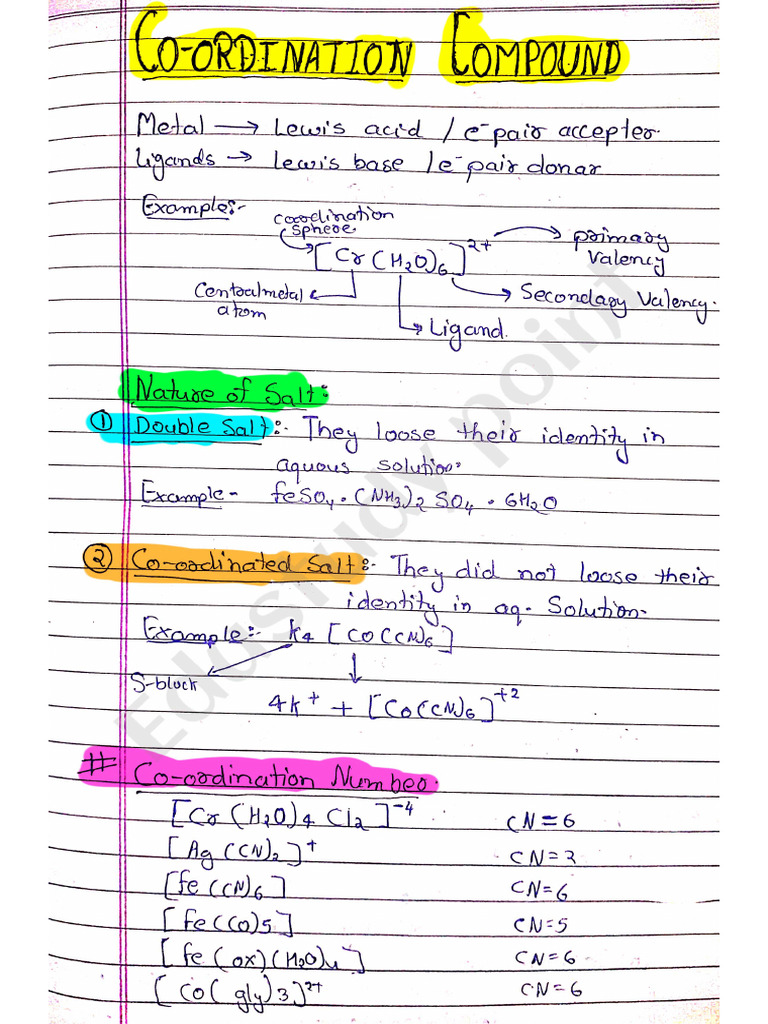 CO-ORDINATION COMPOUND
Metal → Lewis acid / e⁻pair accepter.
Ligands → Lewis base / e⁻pair donar
Example:-
coordination
sphere
[Cr(H₂O)₆]²⁺
primary
Valency
Central metal
atom
Secondary Valency.
Ligand.
Nature of Salt:
① Double Salt:- They loose their identity in
aquous solution.
Example- feSO₄.(NH₃)₂SO₄.6H₂O
② Co-ordinated Salt:- They did not loose their
identity in aq. Solution.
Example:- k₄[CO(CN)₆]
S-block
4k⁺ + [Co(CN)₆]⁺²
# Co-ordination Number.
[Cr(H₂O)₄Cl₂]⁻⁴ CN=6
[Ag(CN)₂]⁺ CN=2
[fe(CN)₆] CN=6
[Fe(CO)5] CN=5
[fe(ox)(H₂O)₄] CN=6
[CO(gly)3]²⁺ CN=6
Edustudy point